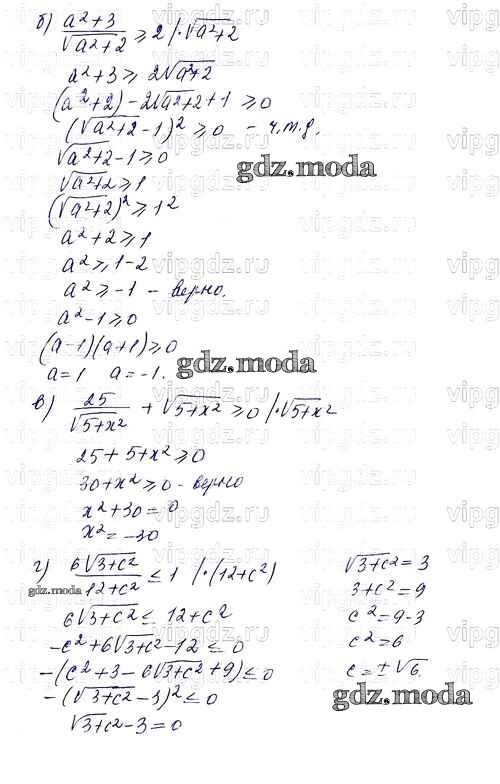 б) (a²+3)/√(a²+2) ⩾ 2 /·√(a²+2)
a²+3 ⩾ 2√(a²+2)
(a²+2) - 2√(a²+2) + 1 ⩾ 0
(√(a²+2) - 1)² ⩾ 0 - ч.т.д.
√(a²+2) - 1 ⩾ 0
gdz.moda
√(a²+2) ⩾ 1
(√(a²+2))² ⩾ 1²
a²+2 ⩾ 1
a² ⩾ 1-2
a² ⩾ -1 - верно.
a²-1 ⩾ 0
(a-1)(a+1) ⩾ 0
gdz.moda
a=1 a=-1.
в) 25/√(5+x²) + √(5+x²) ⩾ 0 /·√(5+x²)
25+5+x² ⩾ 0
30+x² ⩾ 0 - верно
x²+30=0
x²=-30
г) 6√(3+c²)/(12+c²) ≤ 1 /·(12+c²)
gdz.moda
6√(3+c²) ≤ 12+c²
-c²+6√(3+c²)-12 ≤ 0
-(c²+3-6√(3+c²)+9) ≤ 0
-(√(3+c²)-3)² ≤ 0
√(3+c²)-3=0
√(3+c²)=3
3+c²=9
c²=9-3
c²=6
c=±√6.
gdz.moda
vipgdz.ru